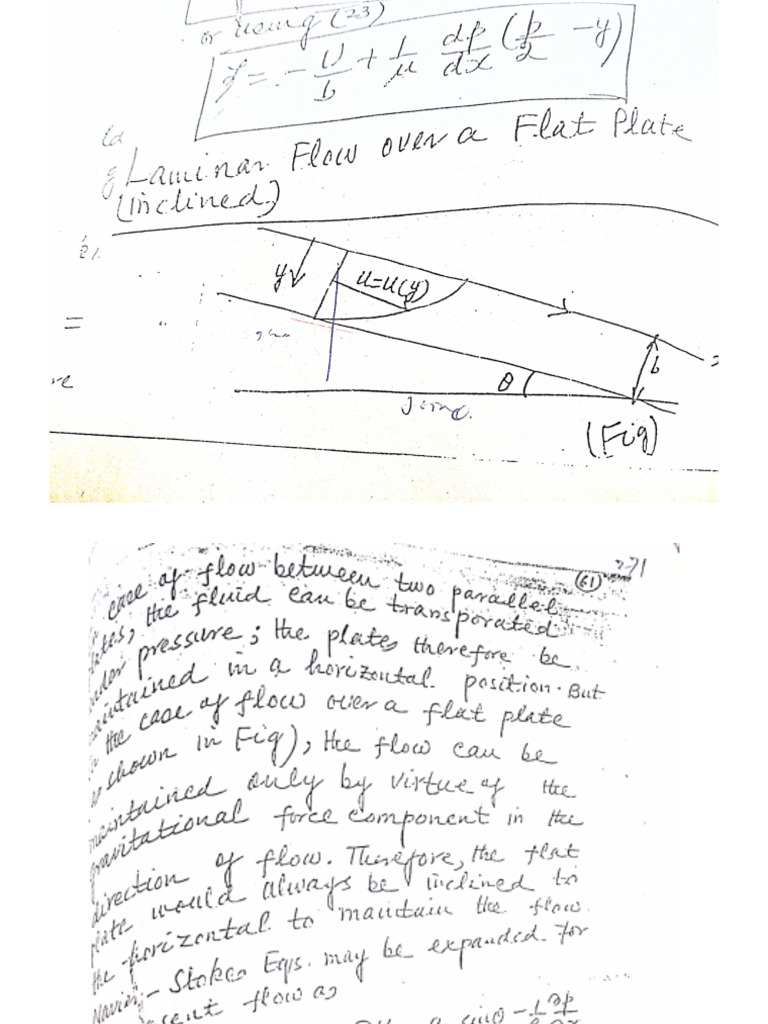 or using (23)
ℨ = - U/b + 1/μ dp/dx (b/2 - y)
Laminar Flow over a Flat Plate
(Inclined)
y
u=u(y)
b
θ
(Fig)
271
(61)
case of flow between two parallel
plates, the fluid can be transporated
under pressure; the plates therefore be
maintained in a horizontal position. But
in the case of flow over a flat plate
as shown in Fig), the flow can be
maintained only by virtue of the
gravitational force component in the
direction of flow. Therefore, the flat
plate would always be inclined to
the horizontal to maintain the flow.
Navier-Stokes Eqs. may be expanded for
flow as
sinθ - 1/ρ ∂p/∂x